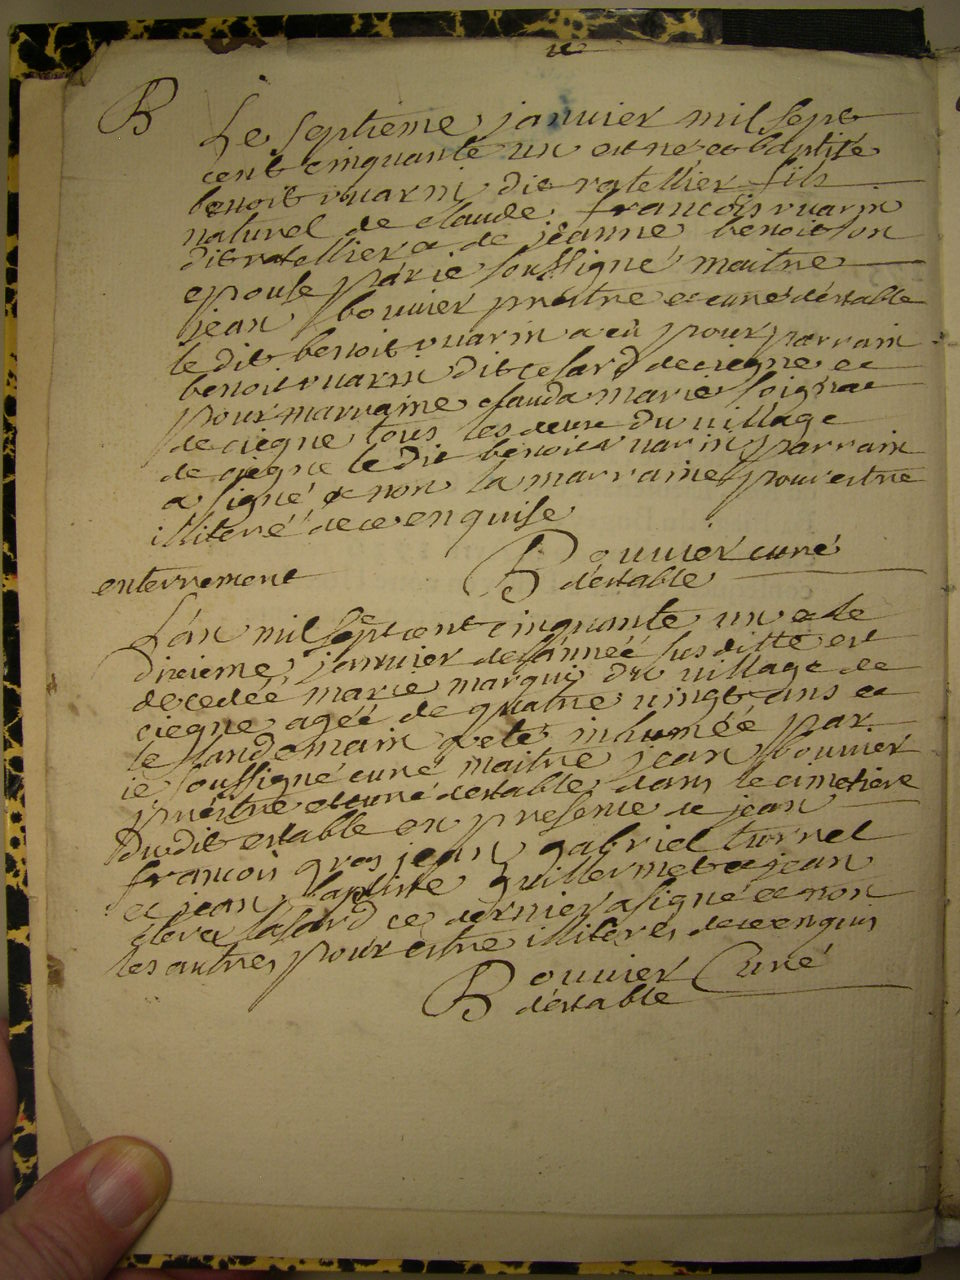 B
Le septieme janvier mil sept
cent cinquante un est ne et baptisé
benoit vuarin dit ratellier fils
naturel de claude françois vuarin
dit ratellier et de jeanne benoit son
epouse par ie soussigné maitre
jean bouvier prestre et curé déstable
le dit benoit vuarin a eü pour parrain
benoit vuarin dit de ciegne et
pour marraine clauda marie
de ciegne tous les deux du village
de ciegne le dit benoit vuarin parrain
a signé et non la marraine pour estre
illiteré de ce enquise
Bouvier curé
déstable
enterrement
L'an mil sept cent cinquante un et le
dixieme janvier de l'année susditte est
decedée marie marqui du village de
ciegne ageé de quatre vingt ans et
le landemain a eté inhumée par
ie soussigné curé maitre jean bouvier
prestre et curé déstable dans le cimetiere
du dit estable en presence de jean
francois gros jean gabriel turrel
et jean baptiste guillermet et jean
ce dernier a signé et non
les autres pour estre illiterés de ce enquis
Bouvier Curé
déstable